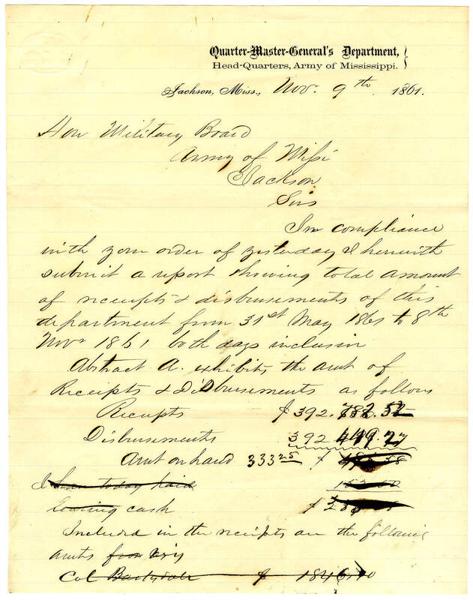 Quarter-Master-General's Department,
Head-Quarters, Army of Mississippi.
Jackson, Miss, Nov. 9th 1861.
Hon Military Board
Army of Missi
Jackson
Sirs
In compliance
with your order of yesterday I herewith
submit a report showing total amount
of receipts & disbursements of this
department from 31st May 1861 to 8th
Novr 1861 both days inclusive
Abstract A. exhibits the amt of
Receipts & Disbursements as follows
Receipts $392.782.52
Disbursements 392 449.27
Amt on hand 33325 $
I have today paid
leaving cash $
Included in the receipts are the following
amts from viz
Col Barksdale $ 1846.